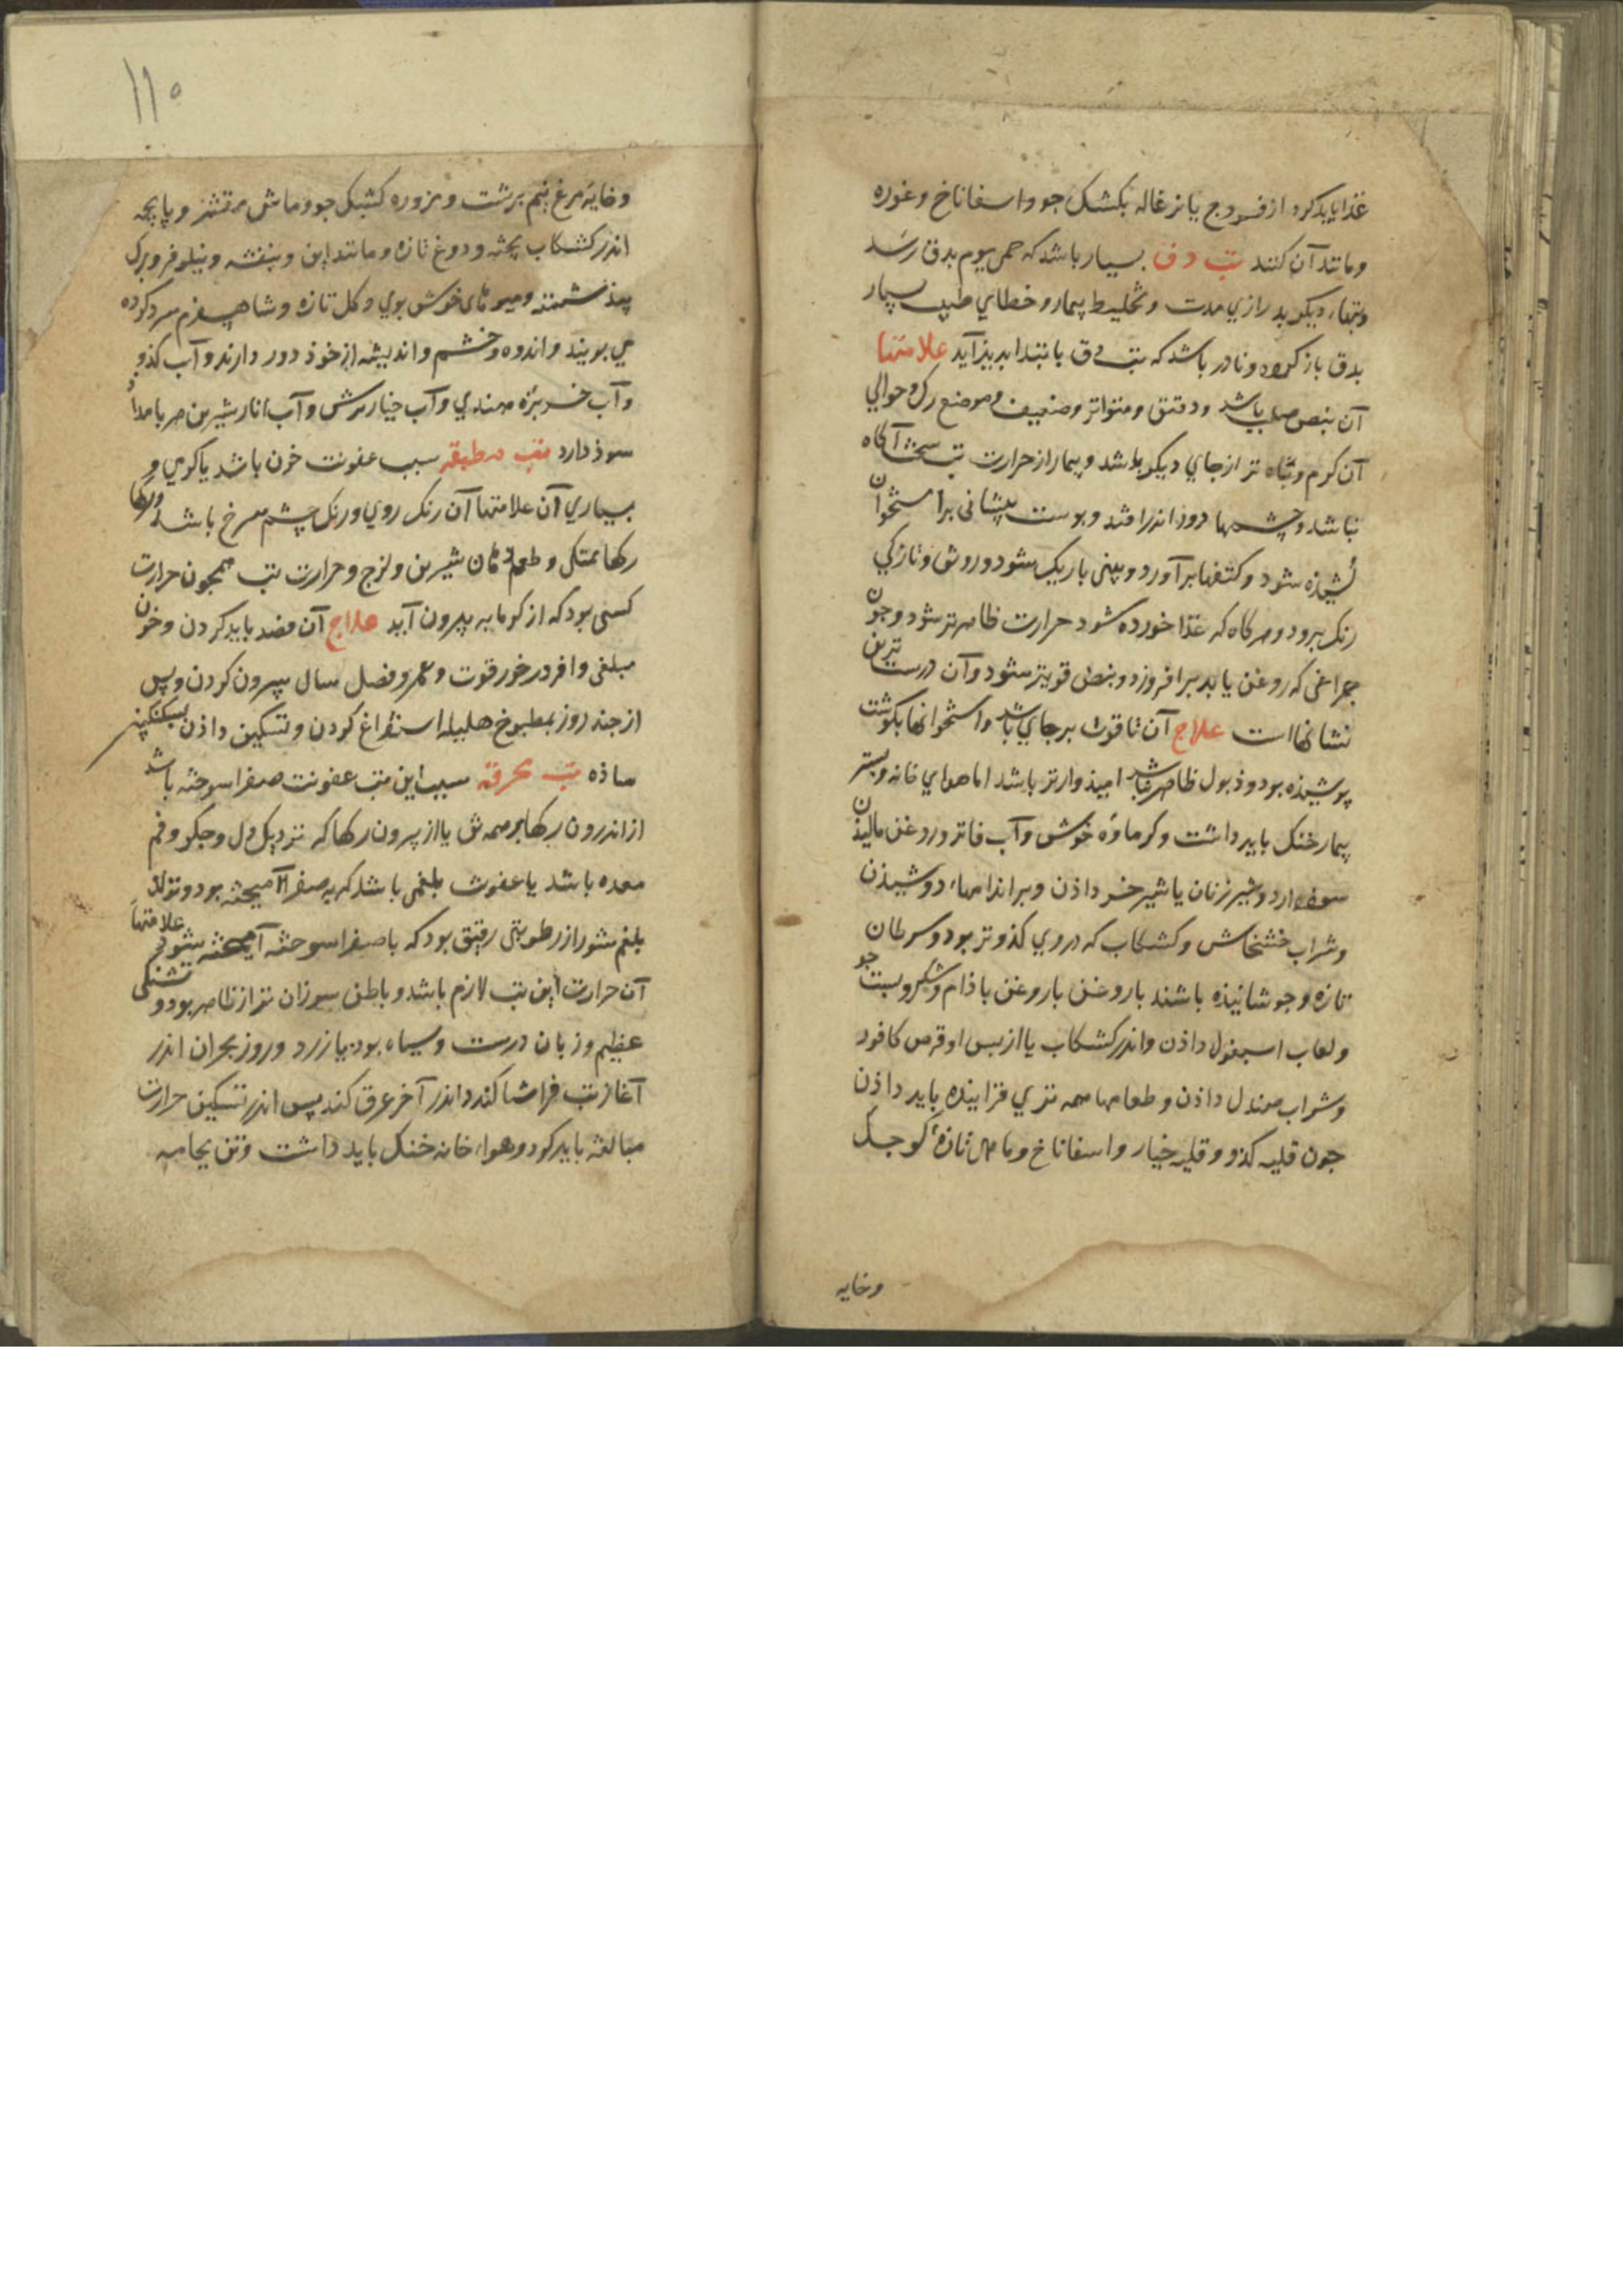 غذا باید کرد از فسروج یا بزغاله بکشک جو و اسفاناخ و غوره
و مانند آن کنند تب دق بسیار باشد که حمی یوم بدق رسد
و تبهاء دیکر بدرازی مدت و تخلیط بیمار و خطای طبیب
بدق باز کردد و نادر باشد که تب دق بابتدا بدیذ آید علامتها
آن نبض صلب باشد و دقیق و متواتر و ضعیف و موضع رک و حوالی
آن کرم و تباه تر از جای دیکر باشد و بیمار از حرارت تب سخت آکاه
نباشد و چشمها دور اندر افتد و پوست پیشانی بر استخوان
کشیذه شود و کتفها برآورد و بینی باریک شود و روش و تازکی
رنک برود و هرکاه که غذا خورده شود حرارت ظاهرتر شود و جون
جراغی که روغن یابد برافروزد و نبض قویتر شود و آن درست ترین
نشانهااست علاج آن تا قوت برجای باشد و استخوانها بکوشت
پوشیذه بود و ذبول ظاهر نباشد امیذوارتر باشد اما هوای خانه و بستر
بیمار خنک باید داشت و کرماوه خوش و آب فاتر و روغن مالیذن
سوذ دارد و شیر زنان یا شیر خر داذن و بر اندامهاء دوشیذن
و شراب خشخاش و کشکاب که در وی کذو تر بود و سرطان
تازه و جوشانیذه باشند با روغن با روغن باذام و شکر و بست جو
و لعاب اسبغول داذن و اندر کشکاب یا از پس او قرص کافور
و شراب صندل داذن و طعامها همه تری فزاینده باید داذن
جون قلیه کذو و قلیه خیار و اسفاناخ و ماهی تازهٔ کوجک
وخایه
۱۱۰
و خایهٔ مرغ نیم برشت و مزوره کشک جو و ماش مقشر و پاجه
اندر کشکاب پخته و دوغ تازه و مانند این و بنفشه و نیلوفر و برک
بیذ شسته و میوهای خوش بوی و کل تازه و شاهسفرم سرد کرده
می بویند و اندوه و خشم و اندیشه از خوذ دور دارند و آب کذو
و آب خربزه هندی و آب خیار ترش و آب انار شیرین هر بامداد
سوذ دارد تب مطبقه سبب عفونت خون باشد یا کرمی و
بسیاری آن علامتها آن رنک روی و رنک چشم سرخ باشد و رکها
رکها ممتلی و طعم دهان شیرین و لزج و حرارت تب همجون حرارت
کسی بود که از کرمابه بیرون آید علاج آن فصد باید کردن و خون
مبلغی وافر در خور قوت و عمر و فصل سال بیرون کردن و پس
از جند روز بمطبوخ هلیله استفراغ کردن و تسکین داذن بسکنکبین
ساذه تب محرقه سبب این تب عفونت صفرا سوخته باشد
از اندرون رکها بر همه تن یا از بیرون رکها که نزدیک دل و جکر و فم
معده باشد یا عفونت بلغمی باشد که به صفرا آمیخته بود و تولد
بلغم شور از رطوبتی رقیق بود که با صفرا سوخته آمیخته شود علامتهاء
آن حرارت این تب لازم باشد و باطن سوزان تر از ظاهر بود و تشنکی
عظیم و زبان درست و سیاه بود یا زرد و روز بحران اندر
آغاز تب فراشا کند و اندر آخر عرق کند پس اندر تسکین حرارت
مبالغه باید کرد و هواء خانه خنک باید داشت و تن بجامه